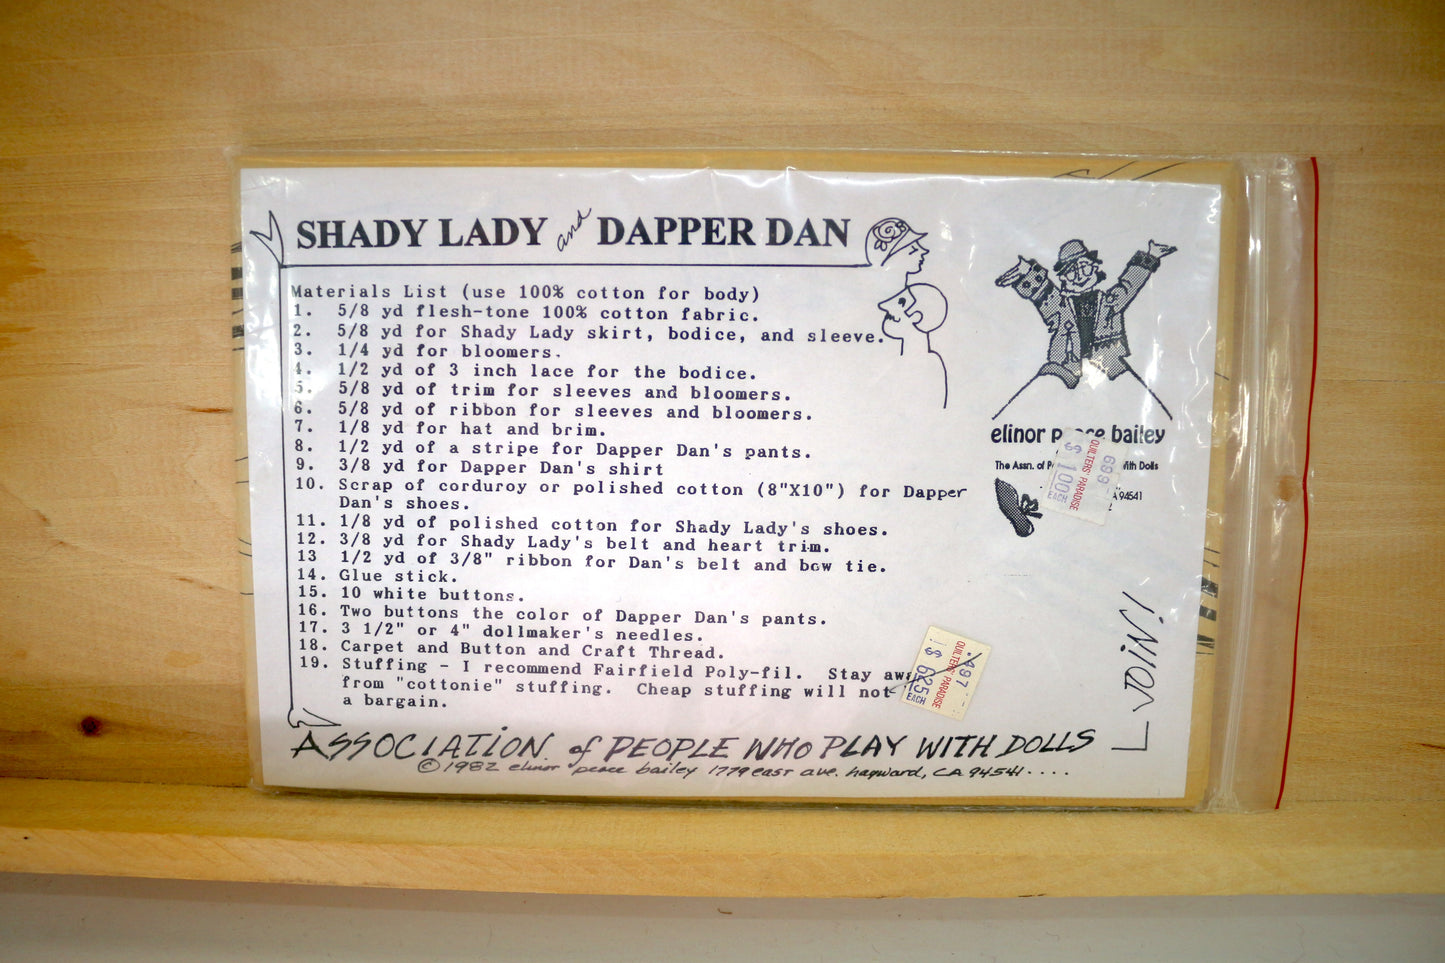 SHADY LADY and DAPPER DAN
Materials List (use 100% cotton for body)
1. 5/8 yd flesh-tone 100% cotton fabric.
2. 5/8 yd for Shady Lady skirt, bodice, and sleeve.
3. 1/4 yd for bloomers.
4. 1/2 yd of 3 inch lace for the bodice.
5. 5/8 yd of trim for sleeves and bloomers.
6. 5/8 yd of ribbon for sleeves and bloomers.
7. 1/8 yd for hat and brim.
8. 1/2 yd of a stripe for Dapper Dan's pants.
9. 3/8 yd for Dapper Dan's shirt
10. Scrap of corduroy or polished cotton (8"X10") for Dapper
Dan's shoes.
11. 1/8 yd of polished cotton for Shady Lady's shoes.
12. 3/8 yd for Shady Lady's belt and heart trim.
13 1/2 yd of 3/8" ribbon for Dan's belt and bow tie.
14. Glue stick.
15. 10 white buttons.
16. Two buttons the color of Dapper Dan's pants.
17. 3 1/2" or 4" dollmaker's needles.
18. Carpet and Button and Craft Thread.
19. Stuffing - I recommend Fairfield Poly-fil. Stay
from "cottonie" stuffing. Cheap stuffing will not
a bargain.
ASSOCIATION of PEOPLE WHO PLAY WITH DOLLS
©1982 elinor peace bailey 1779 east ave. hayward, CA 94541....
elinor peace bailey
The Assn. of With Dolls
94541
699
QUILTERS' PARADISE
$ 1.00
EACH
.497
QUILTERS' PARADISE
$ 6.25
EACH
JOIN!